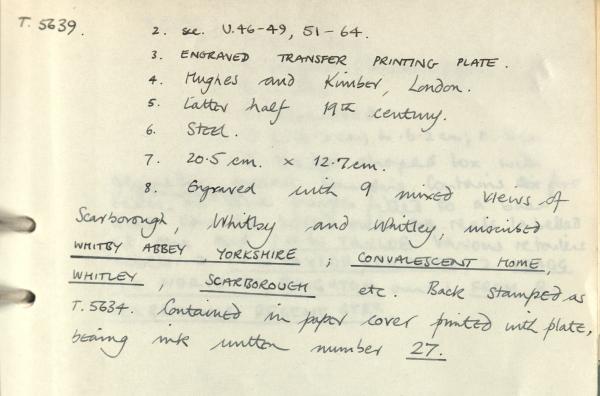 T. 5639.
2. sec. U.46-49, 51-64.
3. ENGRAVED TRANSFER PRINTING PLATE.
4. Hughes and Kimber, London.
5. Latter half 19th century.
6. Steel.
7. 20.5 cm. × 12.7 cm.
8. Engraved with 9 mixed views of
Scarborough, Whitby and Whitley, inscribed
WHITBY ABBEY YORKSHIRE ; CONVALESCENT HOME,
WHITLEY , SCARBOROUGH etc. Back stamped as
T. 5634. Contained in paper cover printed with plate,
bearing ink written number 27.